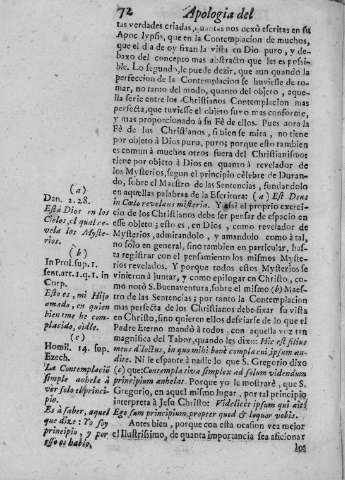 72 Apologia del
tas verdades criadas, quantas nos dexò escritas en su
Apoc lypsis, que en la Contemplacion de muchos,
que el dia de oy fixan la vista en Dio puro, y de-
baxo del concepto mas abstracto que les es posi-
ble. Lo segundo, se puede dezir, que aun quando la
perfeccion de la Contemplacion se huviesse de to-
mar, no tanto del modo, quanto del objeto, aque-
lla serie entre los Christianos Contemplacion mas
perfecta, que tuviesse el objeto suyo mas conforme,
y mas proporcionado à su Fè de ellos. Pues aora la
Fè de los Christianos, si bien se mira, no tiene
por objeto à Dios pura, puro; porque esto tambien
es comun à muchos otros fuera del Christianismo:
tiene por objeto à Dios en quanto à revelador de
los Mysterios, segun el principe cèlebre de Duran-
do, sobre el Maestro de las Sentencias, fundandolo
en aquellas palabras de la Escritura: (a) Est Deus
in Cœlo revelans misteria. Y assi el proprio exerci-
cio de los Christianos debe ser pensar de espacio en
esse objeto; esto es, en Dios, como revelador de
Mysterios, admirandolo, y amandolo como à tal,
no solo en general, sino tambien en particular, has-
ta registrar con el pensamiento los mismos Myste-
rios revelados. Y porque todos estos Mysterios se
vinieron à juntar, y como epilogar en Christo, co-
mo notò S. Buenaventura, sobre el mismo (b) Maes-
tro de las Sentencias; por tanto la Contemplacion
mas perfecta de los Christianos debe fixar su vista
en Christo, sino quieren ellos desviarse de lo que el
Padre Eterno mandò à todos, con aquella voz tan
magnifica del Tabor, quando les dixo: Hic est filius
meus dilectus, in quo mihi bene complacui, ipsum au-
dite. Ni se espante à nadie lo que S. Gregorio dixo
(c) que Contemplativa simplex ad solum videndum
principium anhelat. Porque yo le mostrarè, que S.
Gregorio, en aquel mismo lugar, por tal principio
interpreta à Jesu Christo: Videlicet ipsum qui ait:
Ego sum principium, propter quod & loquor vobis.
Antes bien, porque con esta ocasion vea mejor
el Ilustrissimo, de quanta importancia sea aficionar
los
(a)
Dan. 2. 28.
Està Dios en los
Cielos, el qual re-
vela los Myste-
rios.
(b)
In Prol. sup. 1.
sent. art. 1. q. 1. in
Corp.
Este es, mi Hijo
amado, en quien
bien me he com-
placido, oidle.
(c)
Homil. 14. sup.
Ezech.
La Contemplaciõ
simple anhela à
ver solo el princi-
pio.
Es à saber, aquel
que dize: Yo soy
principio, y por
esso os hablo.